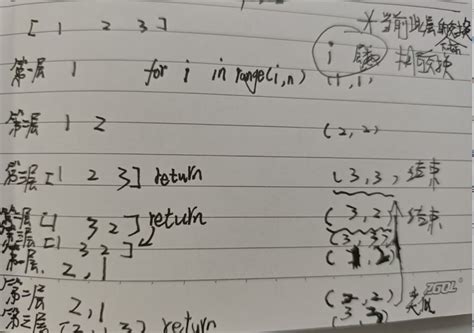 [ 1 2 3 ]
当前此层的交换
第一层 1 for i in range(i,n) i 跟 相交换
(1,1)
第二层 1 2 (2,2)
第三层 [1 2 3] return (3,3, 结束
第二层 [1 3 2] return (3,2) 结束
第三层 [1 3 2] (3,3)
第一层 2,1 (1,2)
第二层 2,1 (2,2)
第三层 [2,1,3] return (3,3